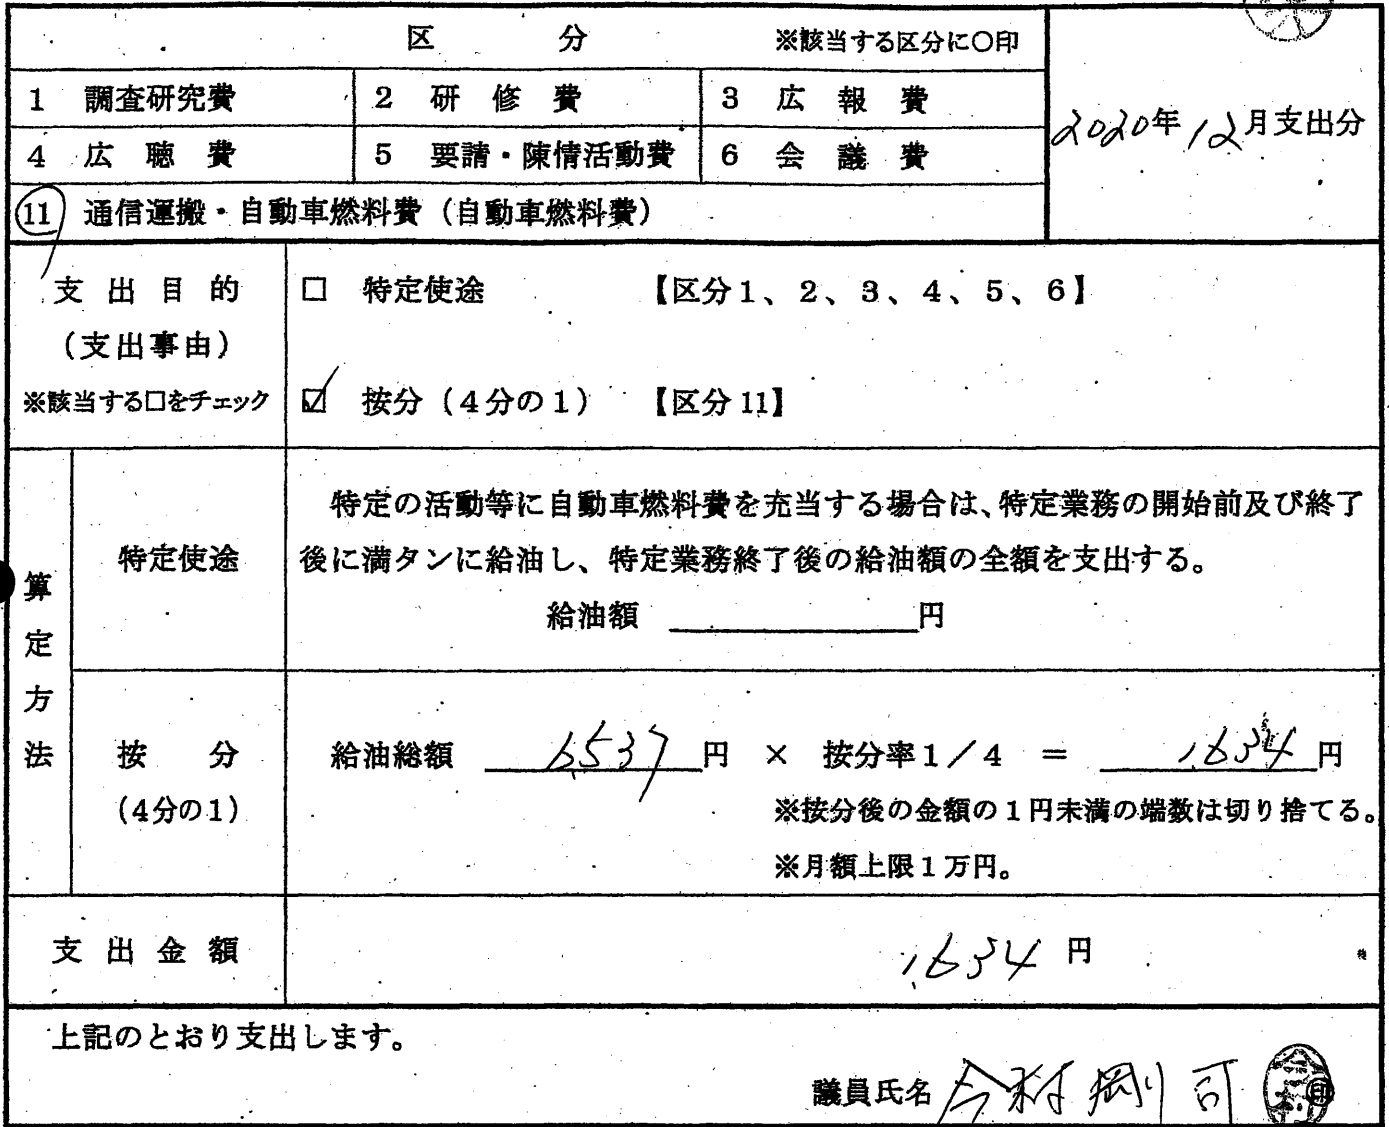 区 分 ※該当する区分に○印
1 調査研究費 2 研修費 3 広報費
2020年12月支出分
4 広聴費 5 要請・陳情活動費 6 会議費
11 通信運搬・自動車燃料費（自動車燃料費）
支出目的 □ 特定使途 【区分1、2、3、4、5、6】
（支出事由）
※該当する□をチェック ☑ 按分（4分の1） 【区分11】
算定方法
特定使途
特定の活動等に自動車燃料費を充当する場合は、特定業務の開始前及び終了
後に満タンに給油し、特定業務終了後の給油額の全額を支出する。
給油額 円
按分 給油総額 6,537円 × 按分率1／4 ＝ 1,634円
（4分の1） ※按分後の金額の1円未満の端数は切り捨てる。
※月額上限1万円。
支出金額 1,634円
上記のとおり支出します。
議員氏名 今村剛司 印